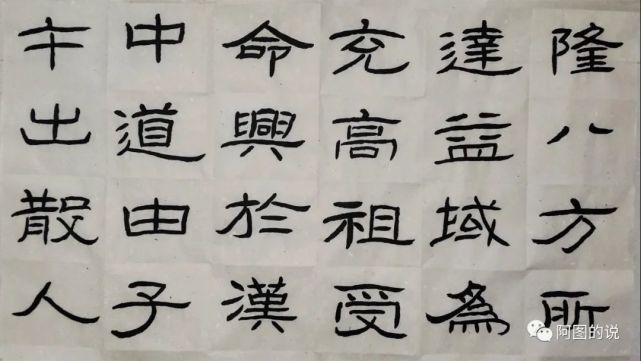 隆八方所
達益域為
充高祖受
命興於漢
中道由子
午出散入
阿图的说